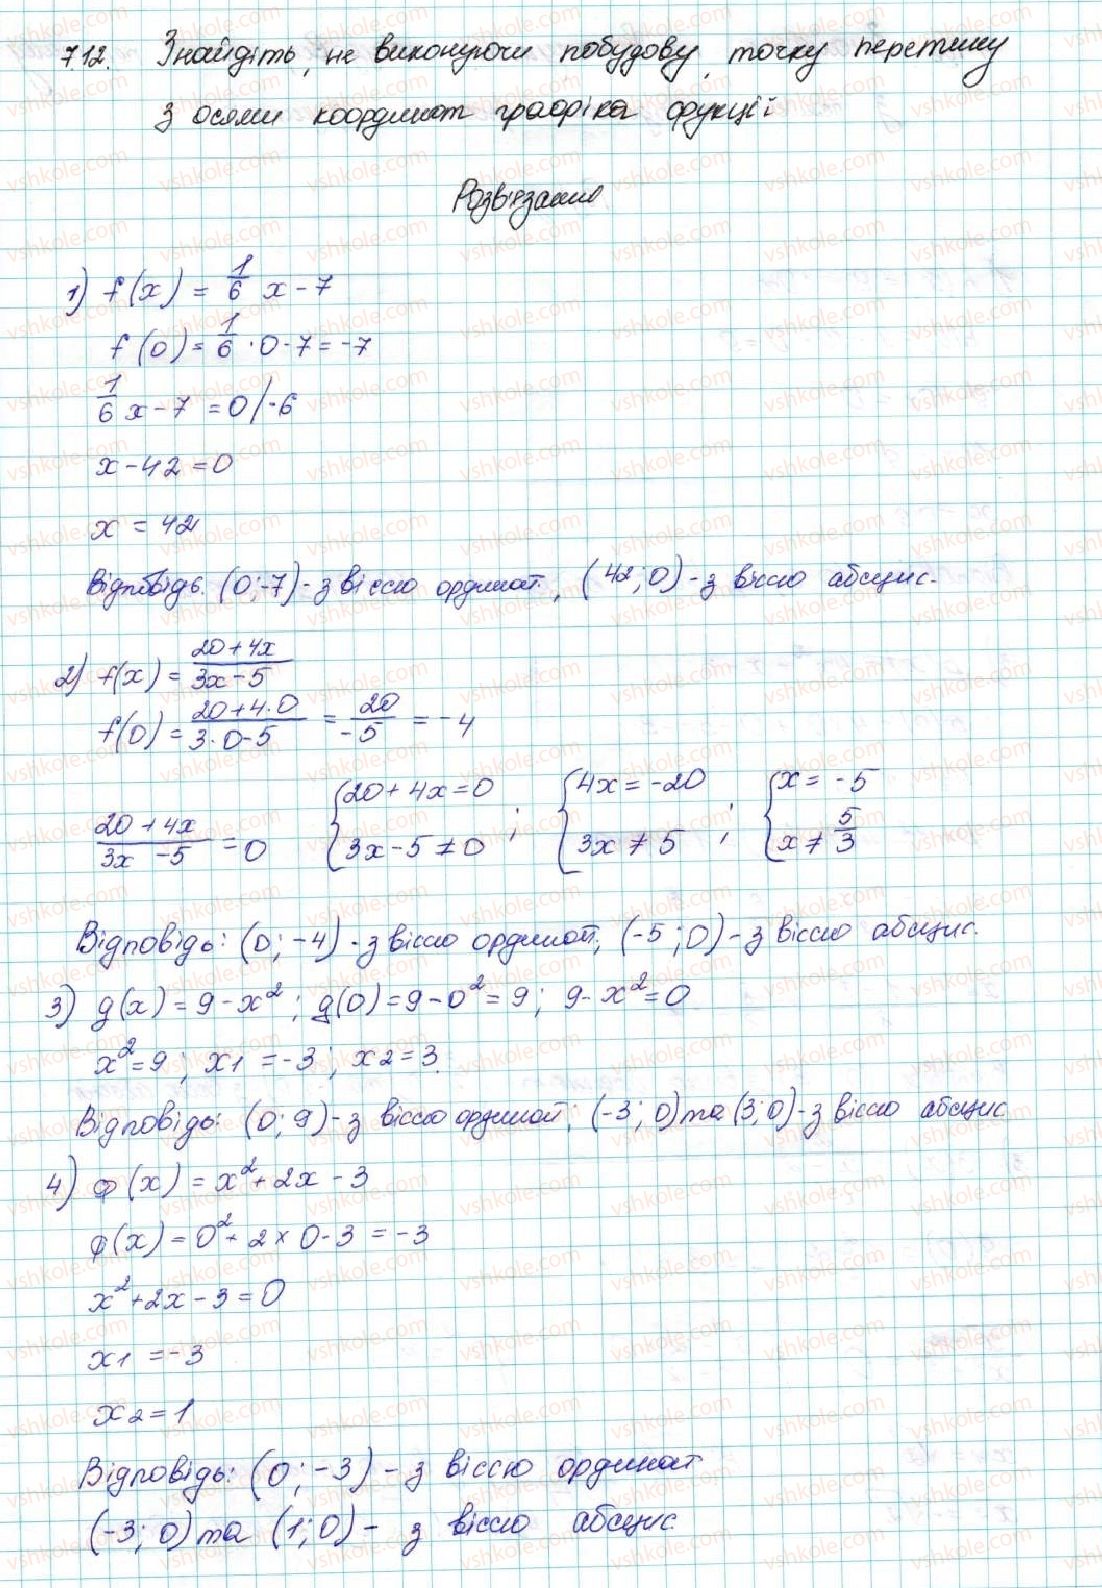 7.12. Знайдіть, не виконуючи побудову, точку перетину
з осями координат графіка функції
Розв'язання
1) f(x) = 1/6 x - 7
f(0) = 1/6 · 0 - 7 = -7
1/6 x - 7 = 0 /·6
x - 42 = 0
x = 42
Відповідь. (0; -7) - з віссю ординат, (42; 0) - з віссю абсцис.
2) f(x) = (20 + 4x)/(3x - 5)
f(0) = (20 + 4·0)/(3·0 - 5) = 20/-5 = -4
(20 + 4x)/(3x - 5) = 0 {20 + 4x = 0 3x - 5 ≠ 0 ; {4x = -20 3x ≠ 5 ; {x = -5 x ≠ 5/3
Відповідь: (0; -4) - з віссю ординат; (-5; 0) - з віссю абсцис.
3) g(x) = 9 - x²; g(0) = 9 - 0² = 9; 9 - x² = 0
x² = 9; x1 = -3; x2 = 3.
Відповідь: (0; 9) - з віссю ординат; (-3; 0) та (3; 0) - з віссю абсцис
4) φ(x) = x² + 2x - 3
φ(x) = 0² + 2 × 0 - 3 = -3
x² + 2x - 3 = 0
x1 = -3
x2 = 1
Відповідь: (0; -3) - з віссю ординат
(-3; 0) та (1; 0) - з віссю абсцис.
vshkole.com